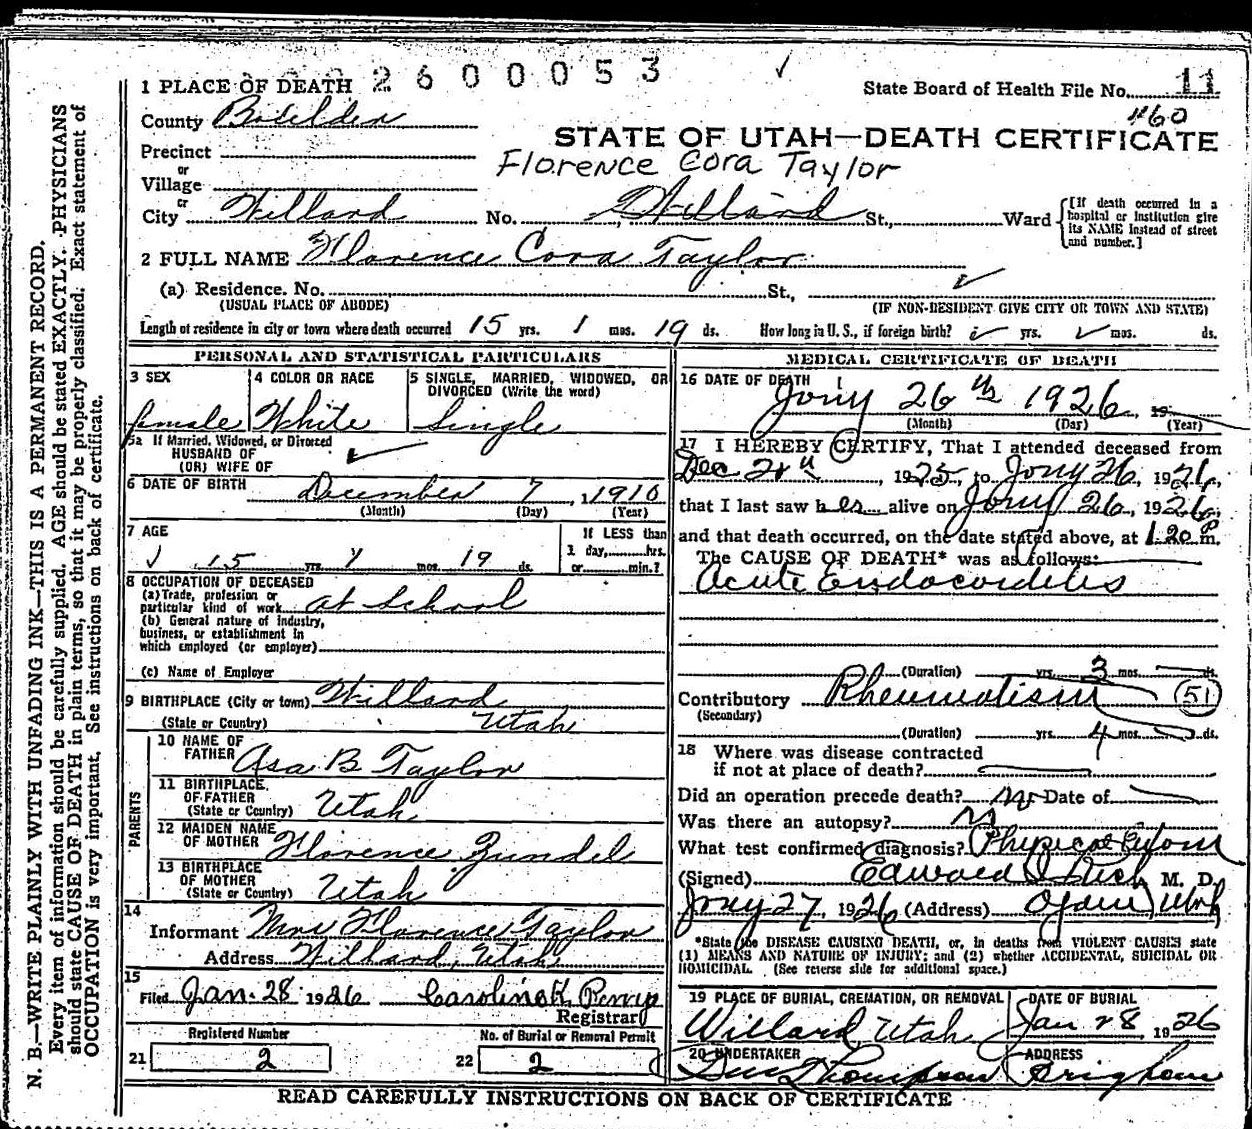 2600053
1 PLACE OF DEATH
State Board of Health File No. 11
460
County Boxelder
STATE OF UTAH—DEATH CERTIFICATE
Precinct
Florence Cora Taylor
or
Village
or
City Willard No. Willard St., Ward [If death occurred in a hospital or institution give its NAME instead of street and number.]
2 FULL NAME Florence Cora Taylor
(a) Residence. No. St.,
(USUAL PLACE OF ABODE) (IF NON-RESIDENT GIVE CITY OR TOWN AND STATE)
Length of residence in city or town where death occurred 15 yrs. 1 mos. 19 ds. How long in U. S., if foreign birth? yrs. mos. ds.
PERSONAL AND STATISTICAL PARTICULARS
3 SEX
female
4 COLOR OR RACE
White
5 SINGLE, MARRIED, WIDOWED, OR DIVORCED (Write the word)
Single
5a If Married, Widowed, or Divorced
HUSBAND OF
(OR) WIFE OF
6 DATE OF BIRTH December 7, 1910
(Month) (Day) (Year)
7 AGE
15 yrs. 1 mos. 19 ds.
If LESS than
1 day, hrs.
or min.?
8 OCCUPATION OF DECEASED
(a) Trade, profession or
particular kind of work at School
(b) General nature of Industry,
business, or establishment in
which employed (or employer)
(c) Name of Employer
9 BIRTHPLACE (City or town) Willard
(State or Country) Utah
PARENTS
10 NAME OF
FATHER Asa B Taylor
11 BIRTHPLACE
OF FATHER
(State or Country) Utah
12 MAIDEN NAME
OF MOTHER Florence Zundel
13 BIRTHPLACE
OF MOTHER
(State or Country) Utah
14
Informant Mrs Florence Taylor
Address Willard, Utah
15
Filed Jan. 28 1926
Registrar
Registered Number
21 2
No. of Burial or Removal Permit
22 2
MEDICAL CERTIFICATE OF DEATH
16 DATE OF DEATH
Jany 26th 1926, 19
(Month) (Day) (Year)
17 I HEREBY CERTIFY, That I attended deceased from
Dec , 1925, to Jany 26, 1926,
that I last saw her alive on Jany 26, 1926,
and that death occurred, on the date stated above, at 1.20 P m.
The CAUSE OF DEATH* was as follows:
Acute Endocarditis
(Duration) yrs. 3 mos. ds.
Contributory Rheumatism (51)
(Secondary)
(Duration) yrs. 4 mos. ds.
18 Where was disease contracted
if not at place of death?
Did an operation precede death? No Date of
Was there an autopsy?
What test confirmed diagnosis? Physical Exam
(Signed) Edward I Rich M. D.
Jany 27, 1926 (Address) Ogden Utah
*State the DISEASE CAUSING DEATH, or, in deaths from VIOLENT CAUSES state
(1) MEANS AND NATURE OF INJURY; and (2) whether ACCIDENTAL, SUICIDAL OR
HOMICIDAL. (See reverse side for additional space.)
19 PLACE OF BURIAL, CREMATION, OR REMOVAL
Willard, Utah
DATE OF BURIAL
Jan 28 1926
20 UNDERTAKER
Thompson
ADDRESS
Brigham
READ CAREFULLY INSTRUCTIONS ON BACK OF CERTIFICATE
N. B.—WRITE PLAINLY WITH UNFADING INK—THIS IS A PERMANENT RECORD.
Every item of information should be carefully supplied. AGE should be stated EXACTLY. PHYSICIANS
should state CAUSE OF DEATH in plain terms, so that it may be properly classified. Exact statement of
OCCUPATION is very important. See instructions on back of certificate.